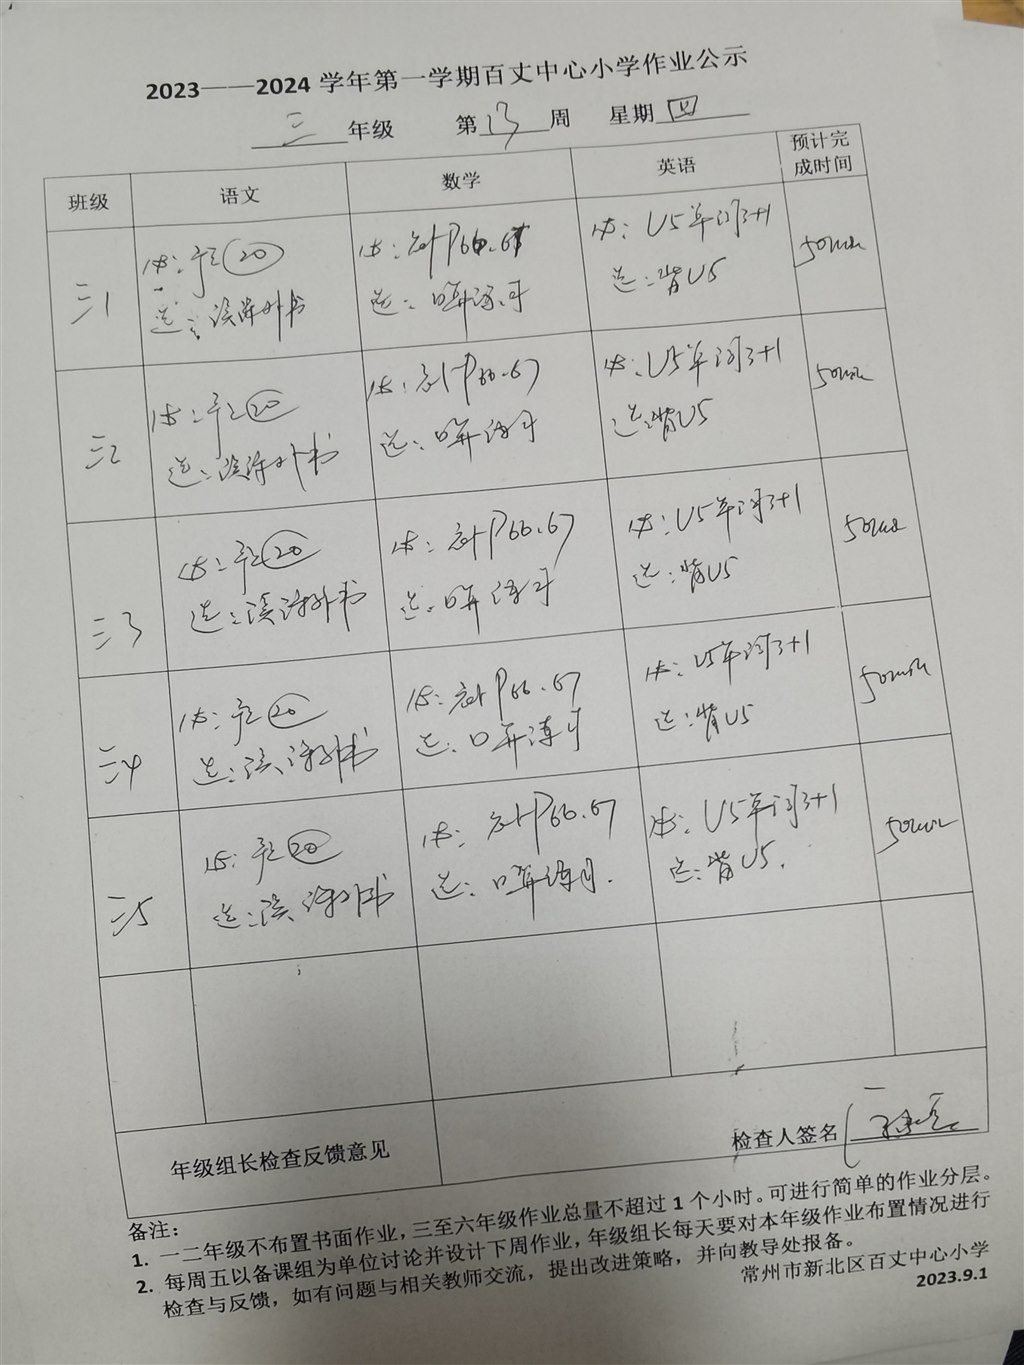 2023——2024 学年第一学期百丈中心小学作业公示
三 年级 第 13 周 星期 四
班级 语文 数学 英语 预计完成时间
三1
必：习 20
选：读课外书
必：补P66.67
选：口算练习
必：U5单词3+1
选：背U5
50min
三2
必：习 20
选：读课外书
必：补P66.67
选：口算练习
必：U5单词3+1
选：背U5
50min
三3
必：习 20
选：读课外书
必：补P66.67
选：口算练习
必：U5单词3+1
选：背U5
50min
三4
必：习 20
选：读课外书
必：补P66.67
选：口算练习
必：U5单词3+1
选：背U5
50min
三5
必：习 20
选：读课外书
必：补P66.67
选：口算练习.
必：U5单词3+1
选：背U5.
50min
年级组长检查反馈意见
检查人签名
备注：
1. 一二年级不布置书面作业，三至六年级作业总量不超过 1 个小时。可进行简单的作业分层。
2. 每周五以备课组为单位讨论并设计下周作业，年级组长每天要对本年级作业布置情况进行
检查与反馈，如有问题与相关教师交流，提出改进策略，并向教导处报备。
常州市新北区百丈中心小学
2023.9.1